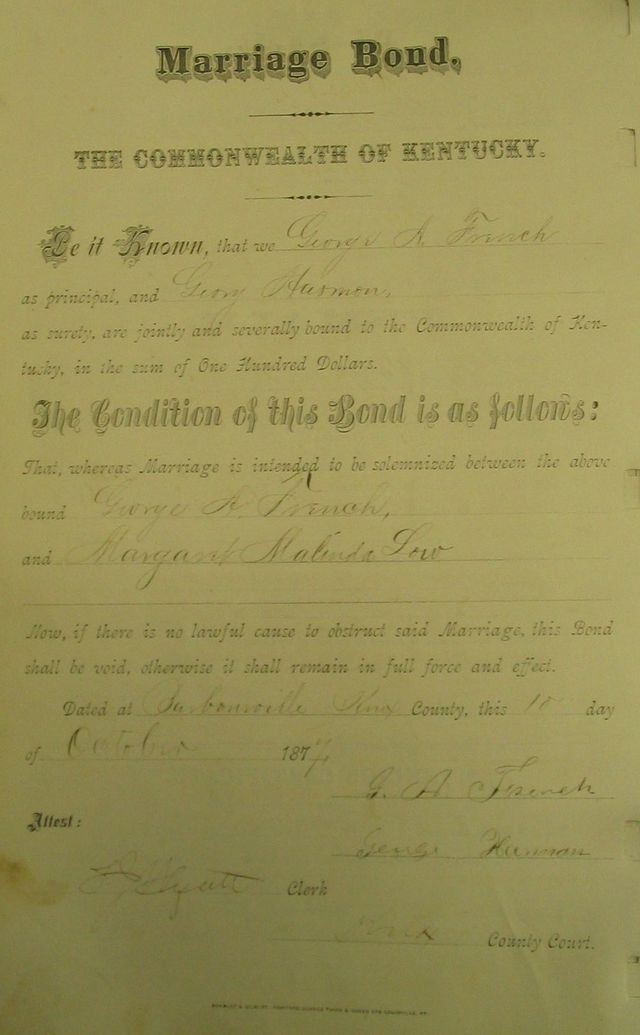 Marriage Bond.
THE COMMONWEALTH OF KENTUCKY.
Be it Known, that we George A. French
as principal, and Georg Harmon,
as surety, are jointly and severally bound to the Commonwealth of Ken-
tucky, in the sum of One Hundred Dollars.
The Condition of this Bond is as follows:
That, whereas Marriage is intended to be solemnized between the above
bound George A. French,
and Margaret Malinda Low
Now, if there is no lawful cause to obstruct said Marriage, this Bond
shall be void, otherwise it shall remain in full force and effect.
Dated at Barbourville Knox County, this 10 day
of October 1877
G. A. French
Attest:
George Harmon
Clerk
Knox County Court.